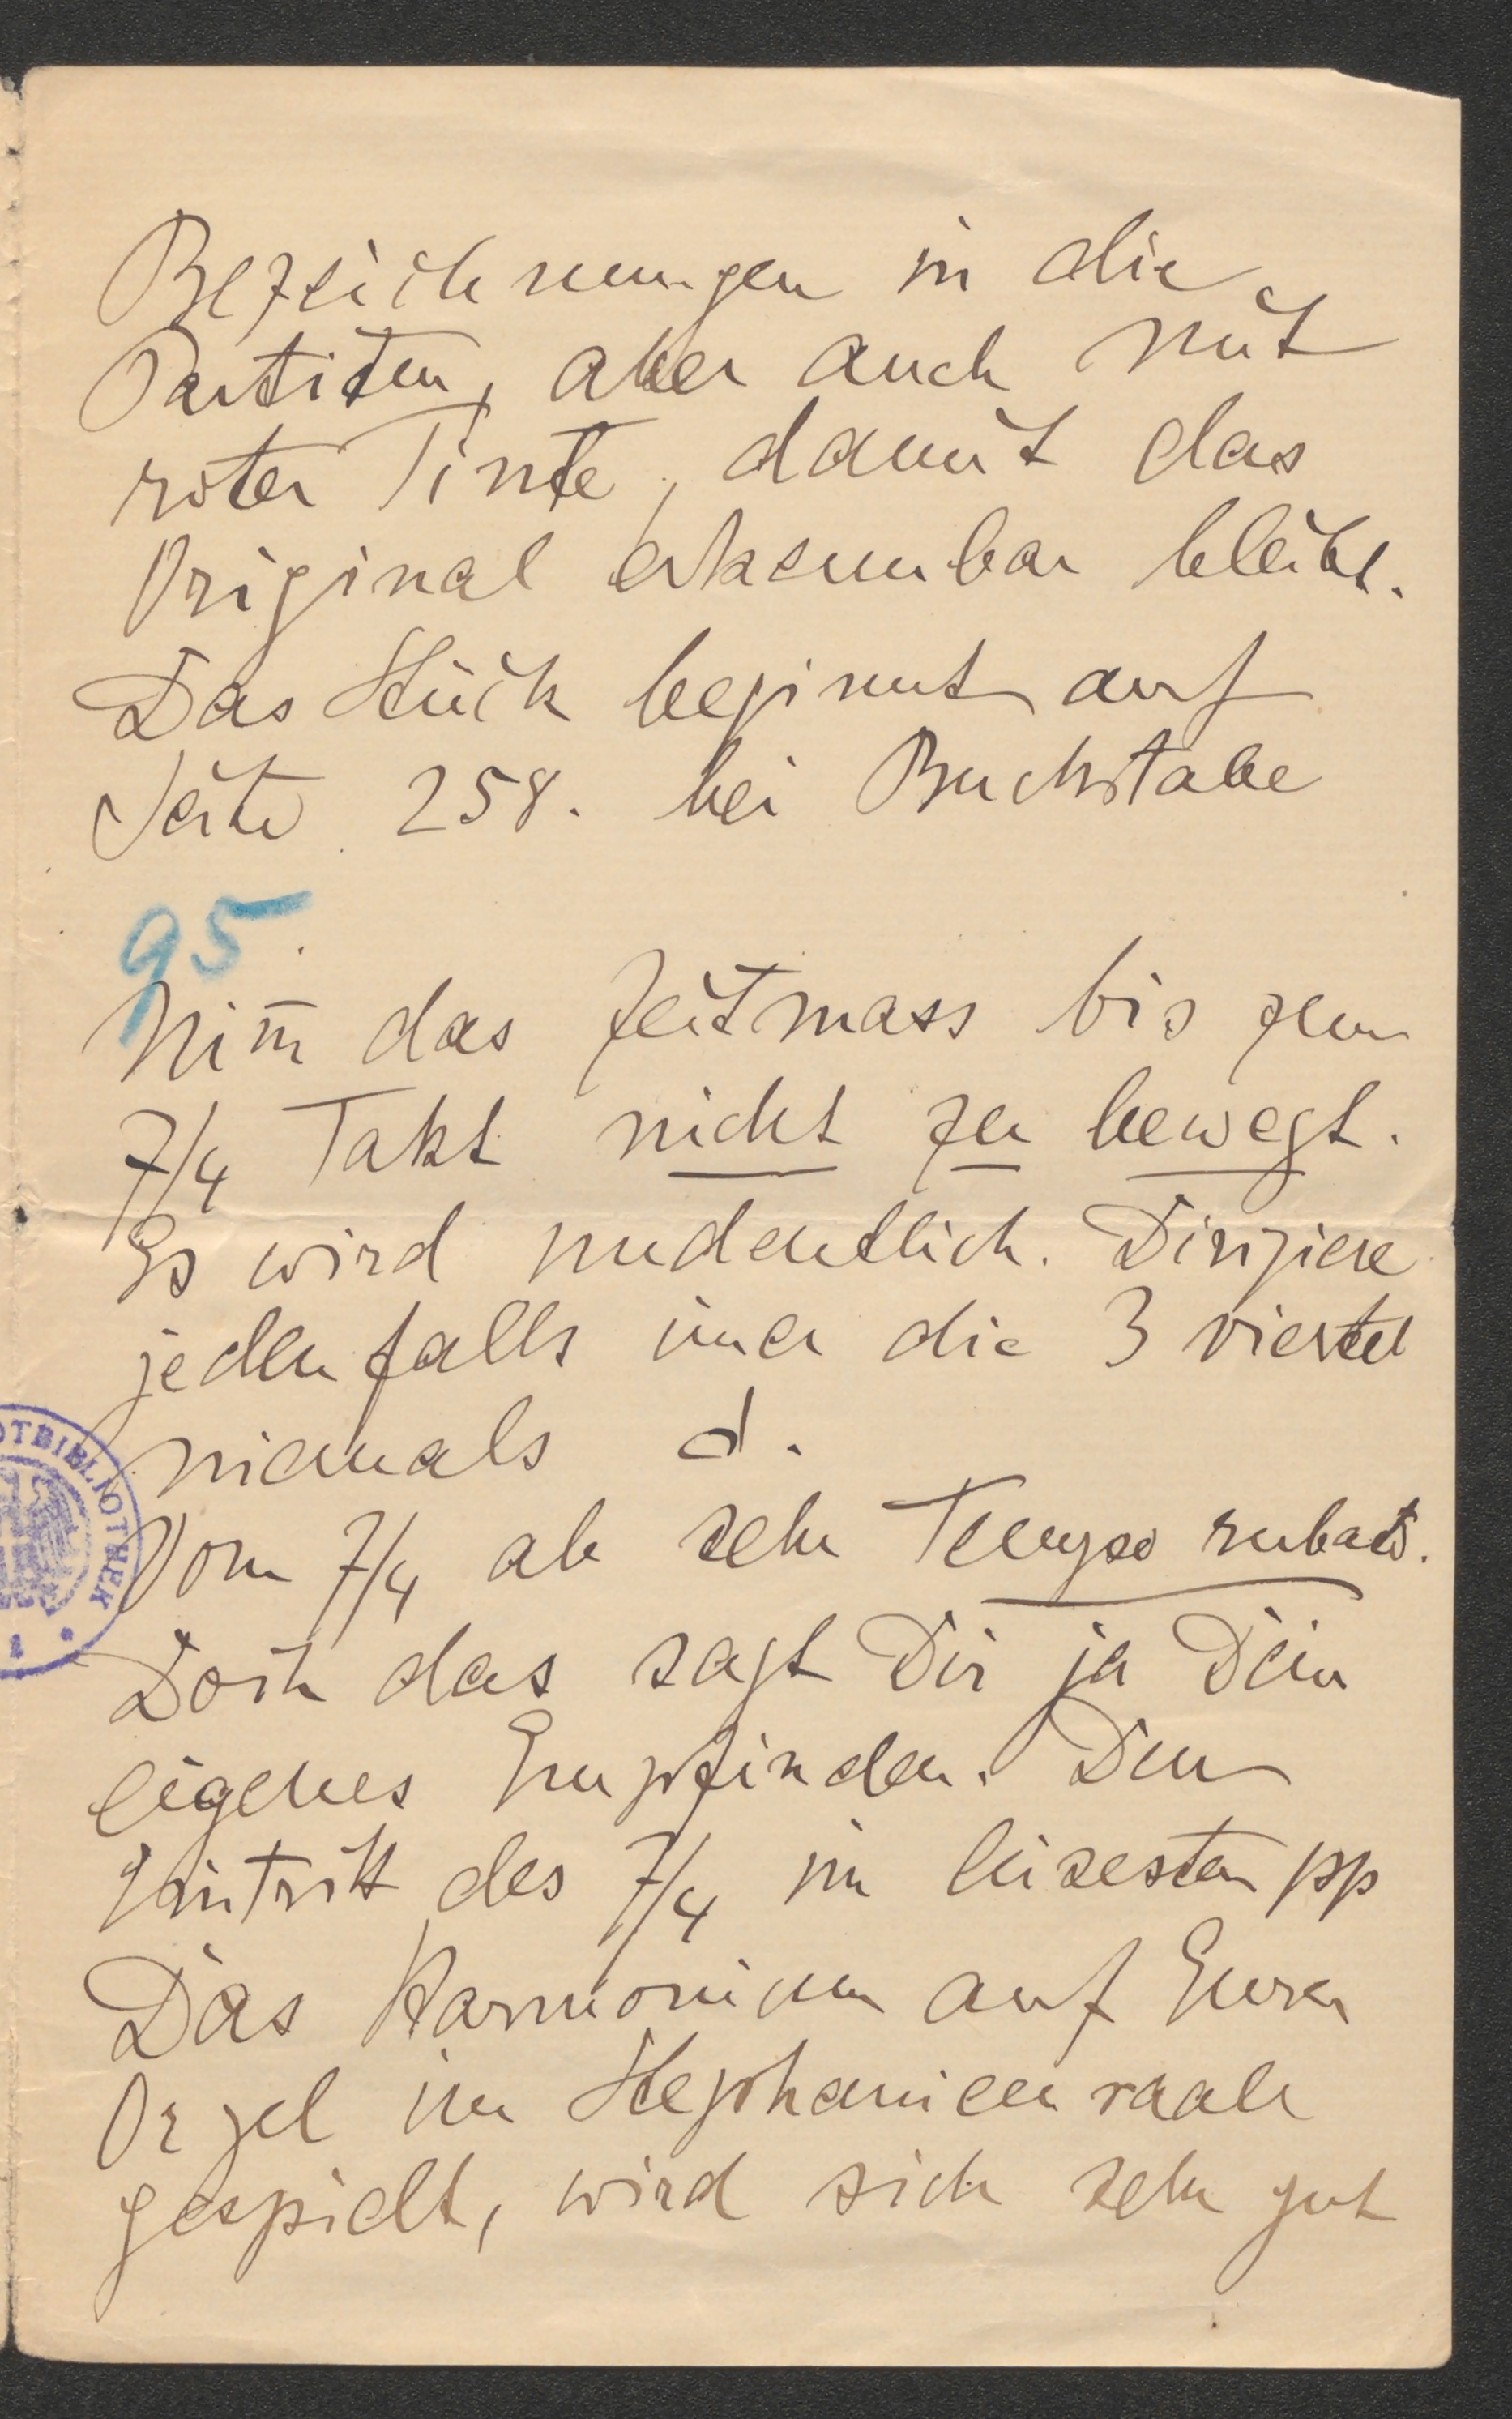 Bezeichnungen in die
Partitur, aber auch mit
roter Tinte, damit das
Original erkennbar bleibt.
Das Stück beginnt auf
Seite 258. bei Buchstabe
95.
Nim̅ das Zeitmass bis zum
7/4 Takt nicht zu bewegt.
Es wird undeutlich. Dirigiere
jedenfalls im̅er die 3 viertel
niemals 𝅗𝅥.
Vom 7/4 ab sehr Tempo rubato.
Doch das sagt Dir ja Dein
eigenes Empfinden. Den
Eintritt des 7/4 im leisesten pp
Das Harmonium auf Eurer
Orgel im Stephaniensaale
gespielt, wird sich sehr gut
OTBIBLIOTHEK